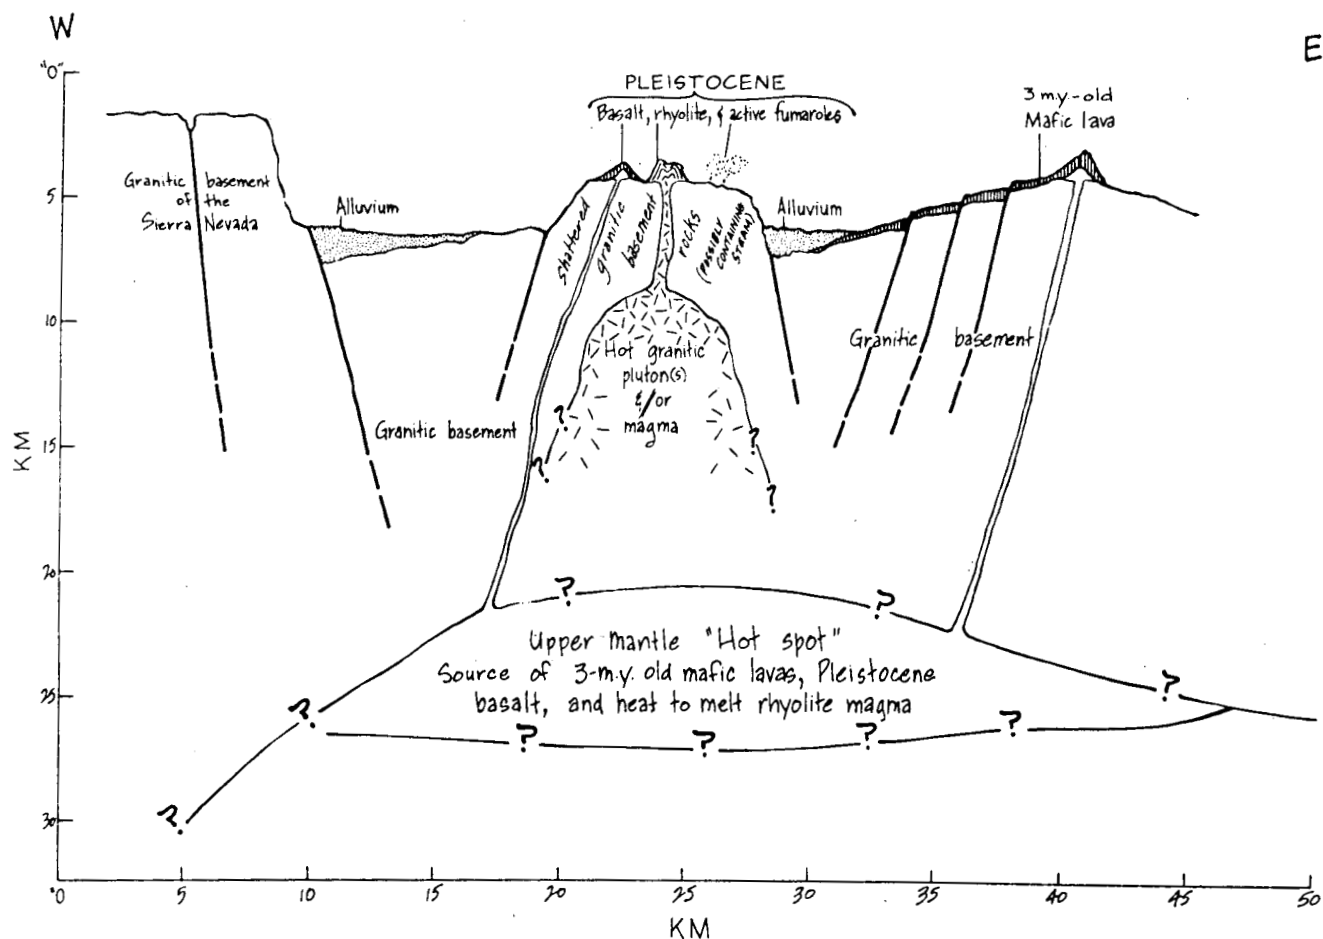 W
E
"0"
5
10
15
20
25
30
KM
PLEISTOCENE
Basalt, rhyolite, & active fumaroles
3 m.y.-old
Mafic lava
Granitic basement
of the
Sierra Nevada
Alluvium
shattered
granitic
basement
rocks
(POSSIBLY
CONTAINING
STEAM)
Alluvium
Granitic basement
Hot granitic
pluton(s)
&/or
magma
Granitic basement
?
?
?
?
?
?
Upper mantle "Hot spot"
Source of 3-m.y. old mafic lavas, Pleistocene
basalt, and heat to melt rhyolite magma
?
?
?
?
?
?
?
0 5 10 15 20 25 30 35 40 45 50
KM